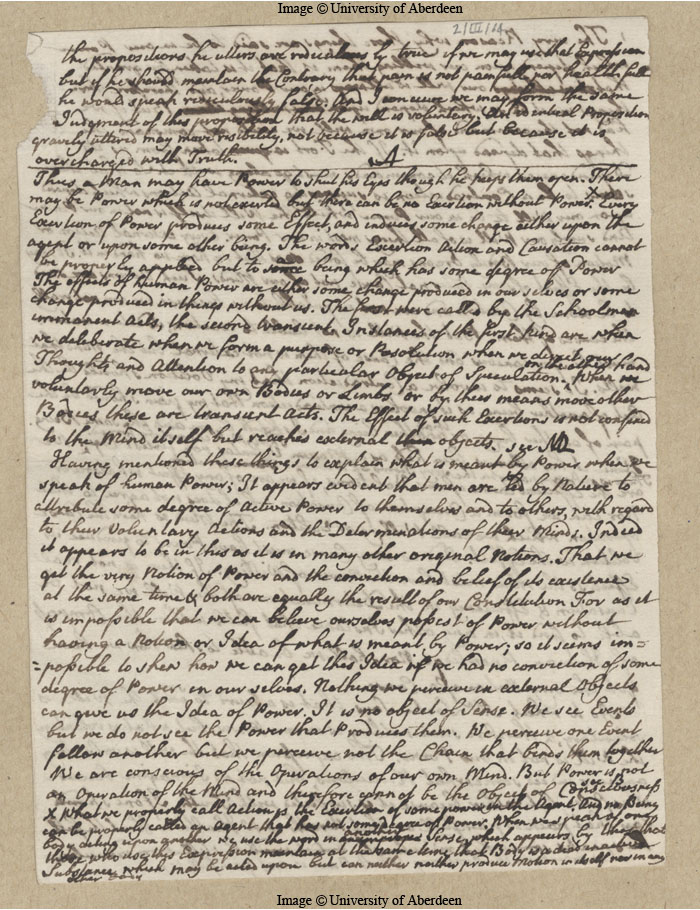 Image © University of Aberdeen
2/III/14
the propositions he utters are ridiculous by true if we may use that Expression
but if he should maintain the Contrary that pain is not painfull nor health full
he would speak rediculously false. And I conceive we may form the same
Judgment of this proposition that the will is voluntary. An identical Proposition
gravely uttered may move risibility, not because it is false but because it is
overcharged with Truth. A
Thus a Man may have Power to shut his Eyes though he keeps them open. There
may be Power which is not exerted but there can be no Exertion without Power. X Every
Exertion of Power produces some Effect, and induces some change either upon the
agent or upon some other being. The words Exertion Action and Causation cannot
be properly applied but to some being which has some degree of Power
The effects of Human Power are either some change produced in our selves or some
change produced in things without us. The first were called by the Schoolmen
immanent Acts, the second transient. Instances of the first kind are when
we deliberate when we form a purpose or Resolution when we direct our
Thoughts and Attention to any particular Object of Speculation. on the other hand When we
voluntarly move our own Bodies or Limbs or by their means move other
Bodies these are transient Acts. The Effect of such Exertions is not confined
to the Mind itself but reaches external objects. see
Having mentioned these things to explain what is meant by Power when we
speak of human Power; It appears evident that men are led by Nature to
attribute some degree of Active Power to themselves and to others, with regard
to their Voluntary Actions and the Determinations of their Minds. Indeed
it appears to be in this as it is in many other original Notions. That we
get the very Notion of Power and the conviction and belief of its existence
at the same time & both are equally the result of our Constitution For as it
is impossible that we can believe ourselves possest of Power without
having a Notion or Idea of what is meant by Power; so it seems im=
=possible to shew how we can get this Idea if we had no conviction of some
degree of Power in our selves. Nothing we perceive in external Objects
can give us the Idea of Power. It is no object of Sense. We see Events
but we do not see the Power that Produces them. We perceive one Event
follow another but we perceive not the Chain that binds them together
We are conscious of the Operations of our own Mind. But Power is not
an Operation of the Mind and therefore cannot be the Object of Consciousness
X What we properly call Action is the Exertion of some power in the Agent, And no Being
can be properly called an Agent that has not some degree of Power. When we speak of one
body acting upon another we use the word in another Sense, which appears by this that
those who use this Expression maintain at the same time that Body is a dead inactive
Substance which may be acted upon but can neither produce Motion in itself nor in any
other Body
Image © University of Aberdeen